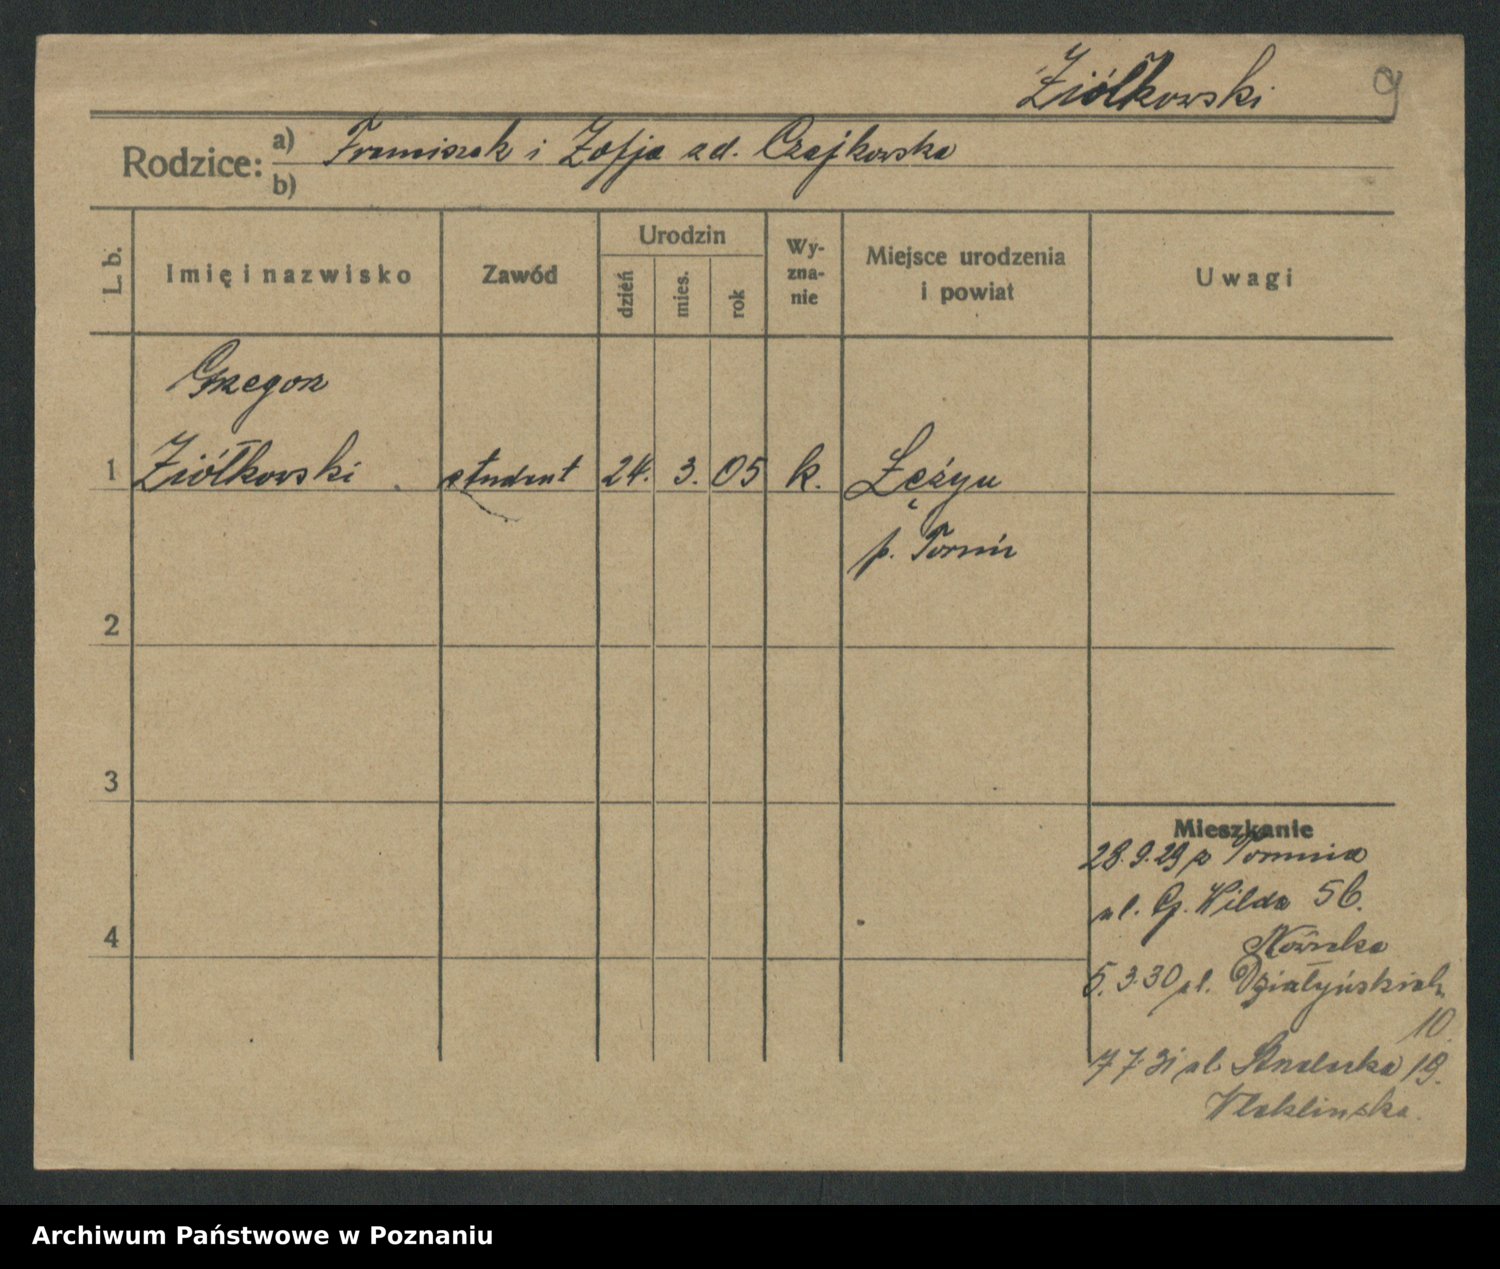 Ziółkowski 9
Rodzice: a) Franciszek i Zofja zd. Czajkowska
b)
L. b. Imię i nazwisko Zawód Urodzin dzień mies. rok Wyzna-nie Miejsce urodzenia i powiat Uwagi
Grzegorz
1 Ziółkowski student 24. 3. 05 k. Łążyn
p. Toruń
2
3
Mieszkanie
28.9.29 z Torunia
ul. G. Wilda 56.
4
5.3.30 ul. Działyńskich
10.
7 7 31 ul. 19.
Archiwum Państwowe w Poznaniu